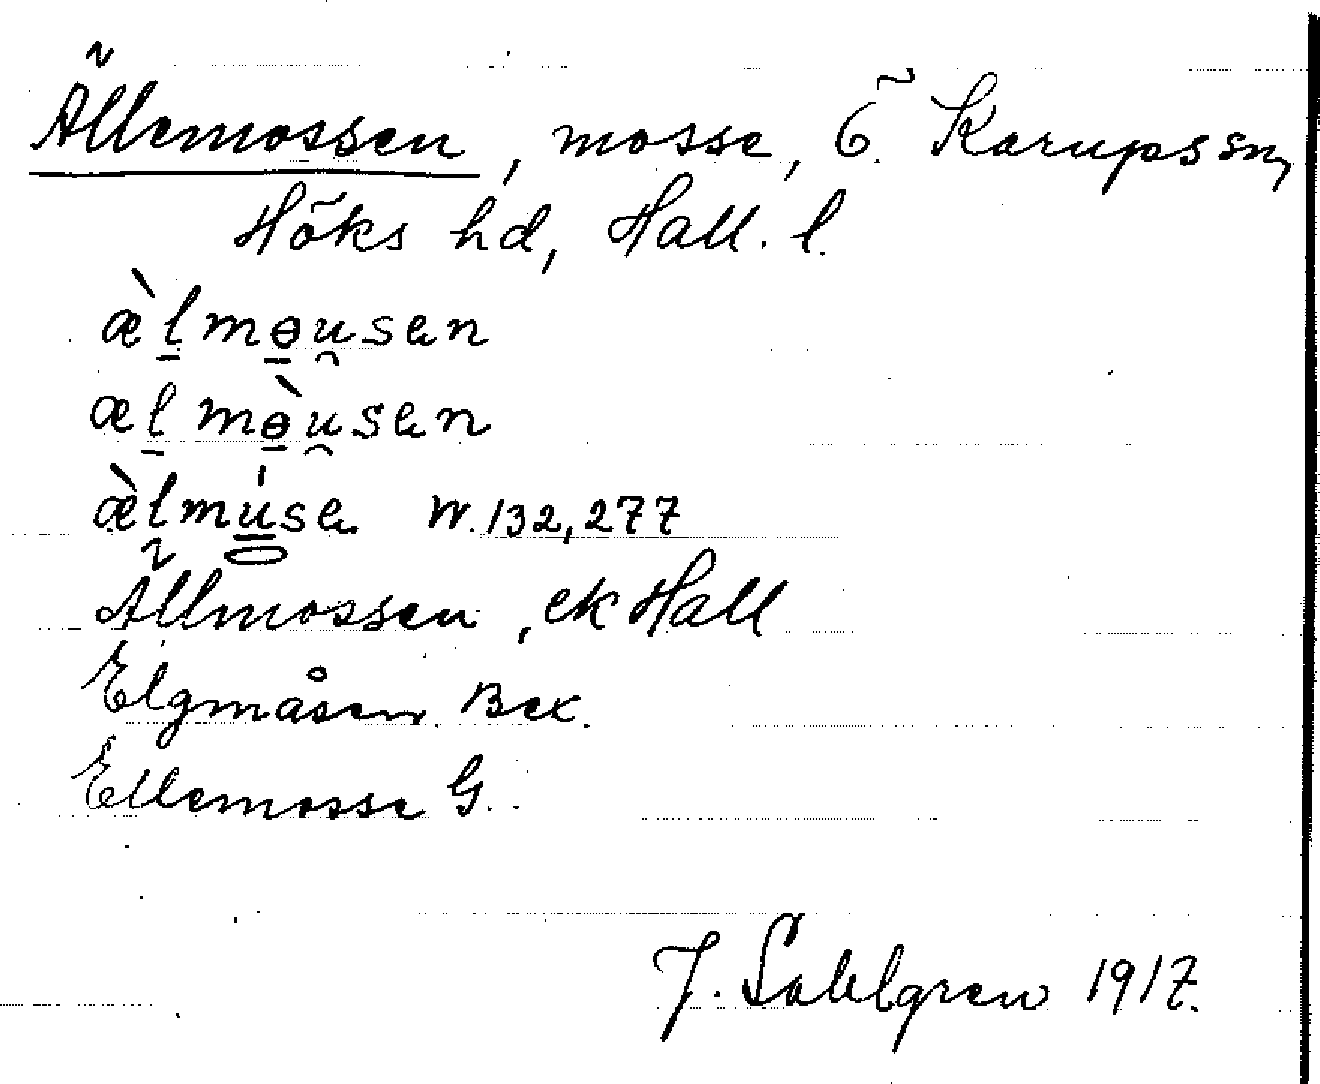 Ällemossen, mosse, Ö. Karups sn,
Höks hd, Hall. l.
æ̀l̠mɵ̠u̯sen
æl̠mɵ̠̀u̯sen
æ̀lmúse W. 132, 277
Ällmossen, ek Hall
Elgmåsen Bex.
Ellemosse G.
J. Sahlgren 1917.